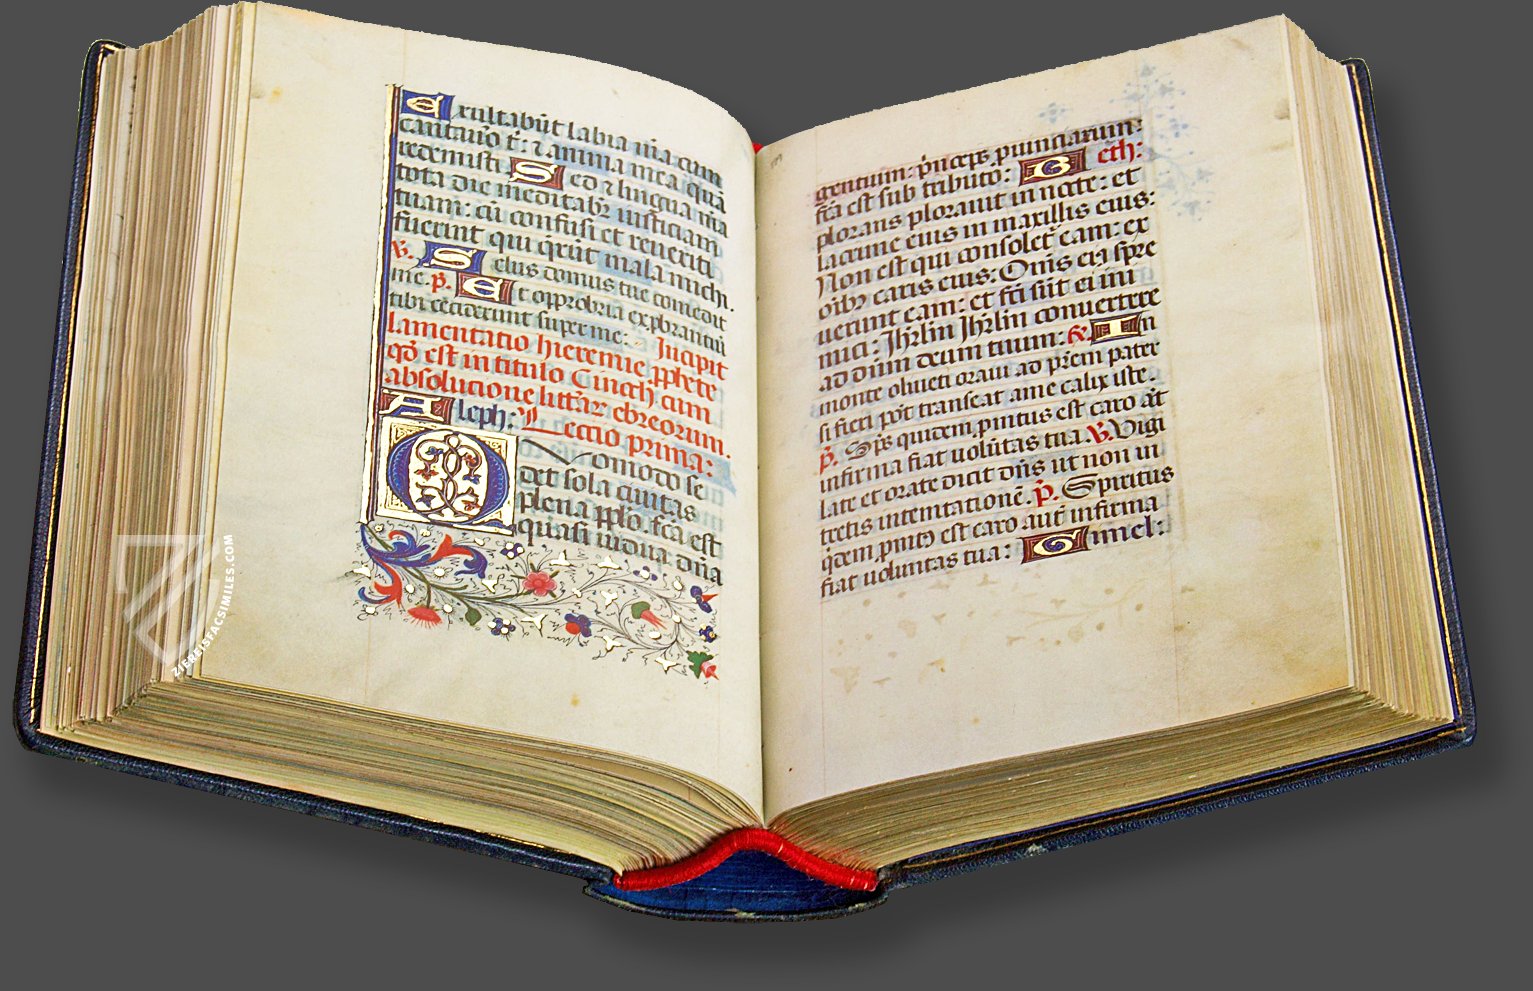 Exultabūt labia m̄a cum
cantauo t̄: ⁊ anima mea quā
redemisti Sed ⁊ lingua m̄a
tota die meditabr̄ iusticiam
tuam: cū confusi et reueriti
fuerint qui q̄rūt mala michi.
V. Selus domus tue comedit
me. p̄. Et opprobria exprobrantiū
tibi ceciderunt super me: Incipit
lamentatio hieremie ꝓphete
qd̄ est in titulo Cinoth cum
absolucione litt̄ar ebreorum.
Aleph: Lectio prima:
Quomodo se
det sola ciuitas
plena pplō. fc̄a est
quasi uidua. dn̄a
gentium: p̄nceps prouinciarum:
fc̄a est sub tributo: Beth:
plorans plorauit in nocte: et
lacrime eius in maxillis eius:
Non est qui consolet̄ eam: ex
oībꝫ caris eius: Om̄s eiꝰ spre
uerunt eam: et fc̄i sūt ei ini
mici: Ihrl̄m Ihrl̄m conuertere
ad dūm deum tuum: R. In
monte oliueti oraui ad p̄rem pater
si fieri pōt transeat a me calix iste.
p̄. Sp̄s quidem promtus est caro aūt
infirma fiat uolūtas tua. V. Vigi
late et orate dicit dn̄s ut non in
tretis in temtationē. p̄. Spiritus
q̄dem promtꝰ est caro aut̄ infirma
fiat uoluntas tua: Gimel:
ZIEREISFACSIMILES.COM